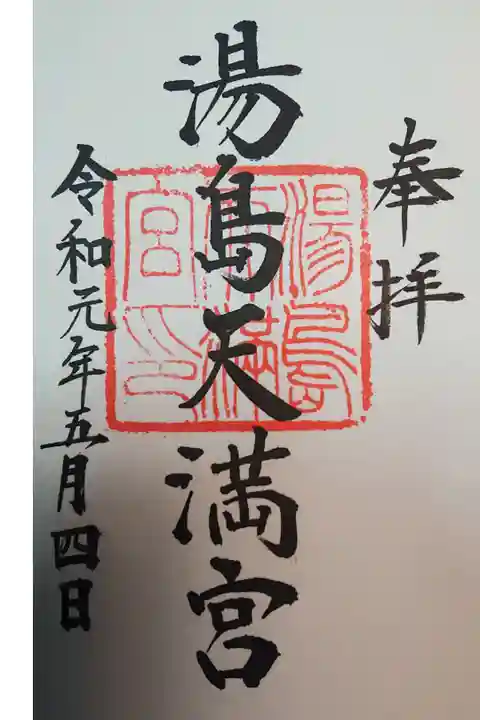 奉拝
湯島天満宮
湯島天満宮印
令和元年五月四日